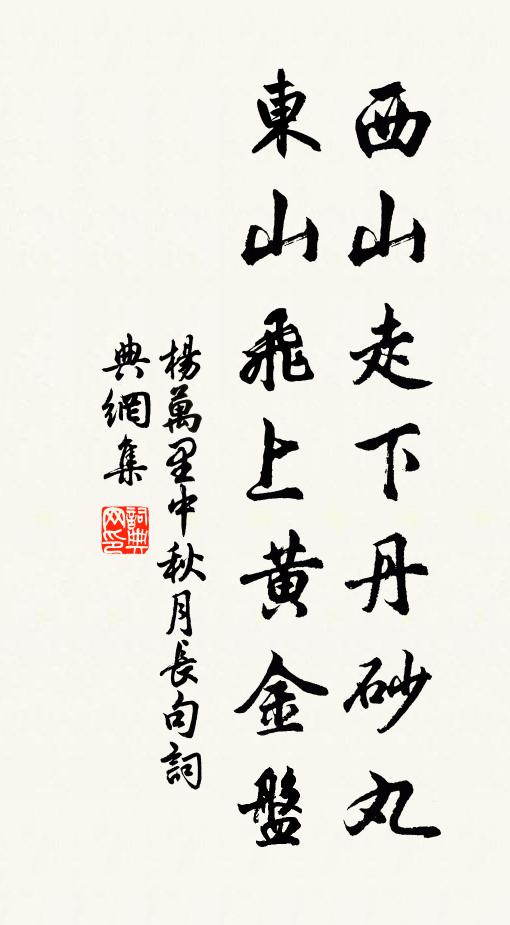 西山走下丹砂丸
東山飛上黃金盤
楊萬里中秋月長句詞
典網集
詞典
网印